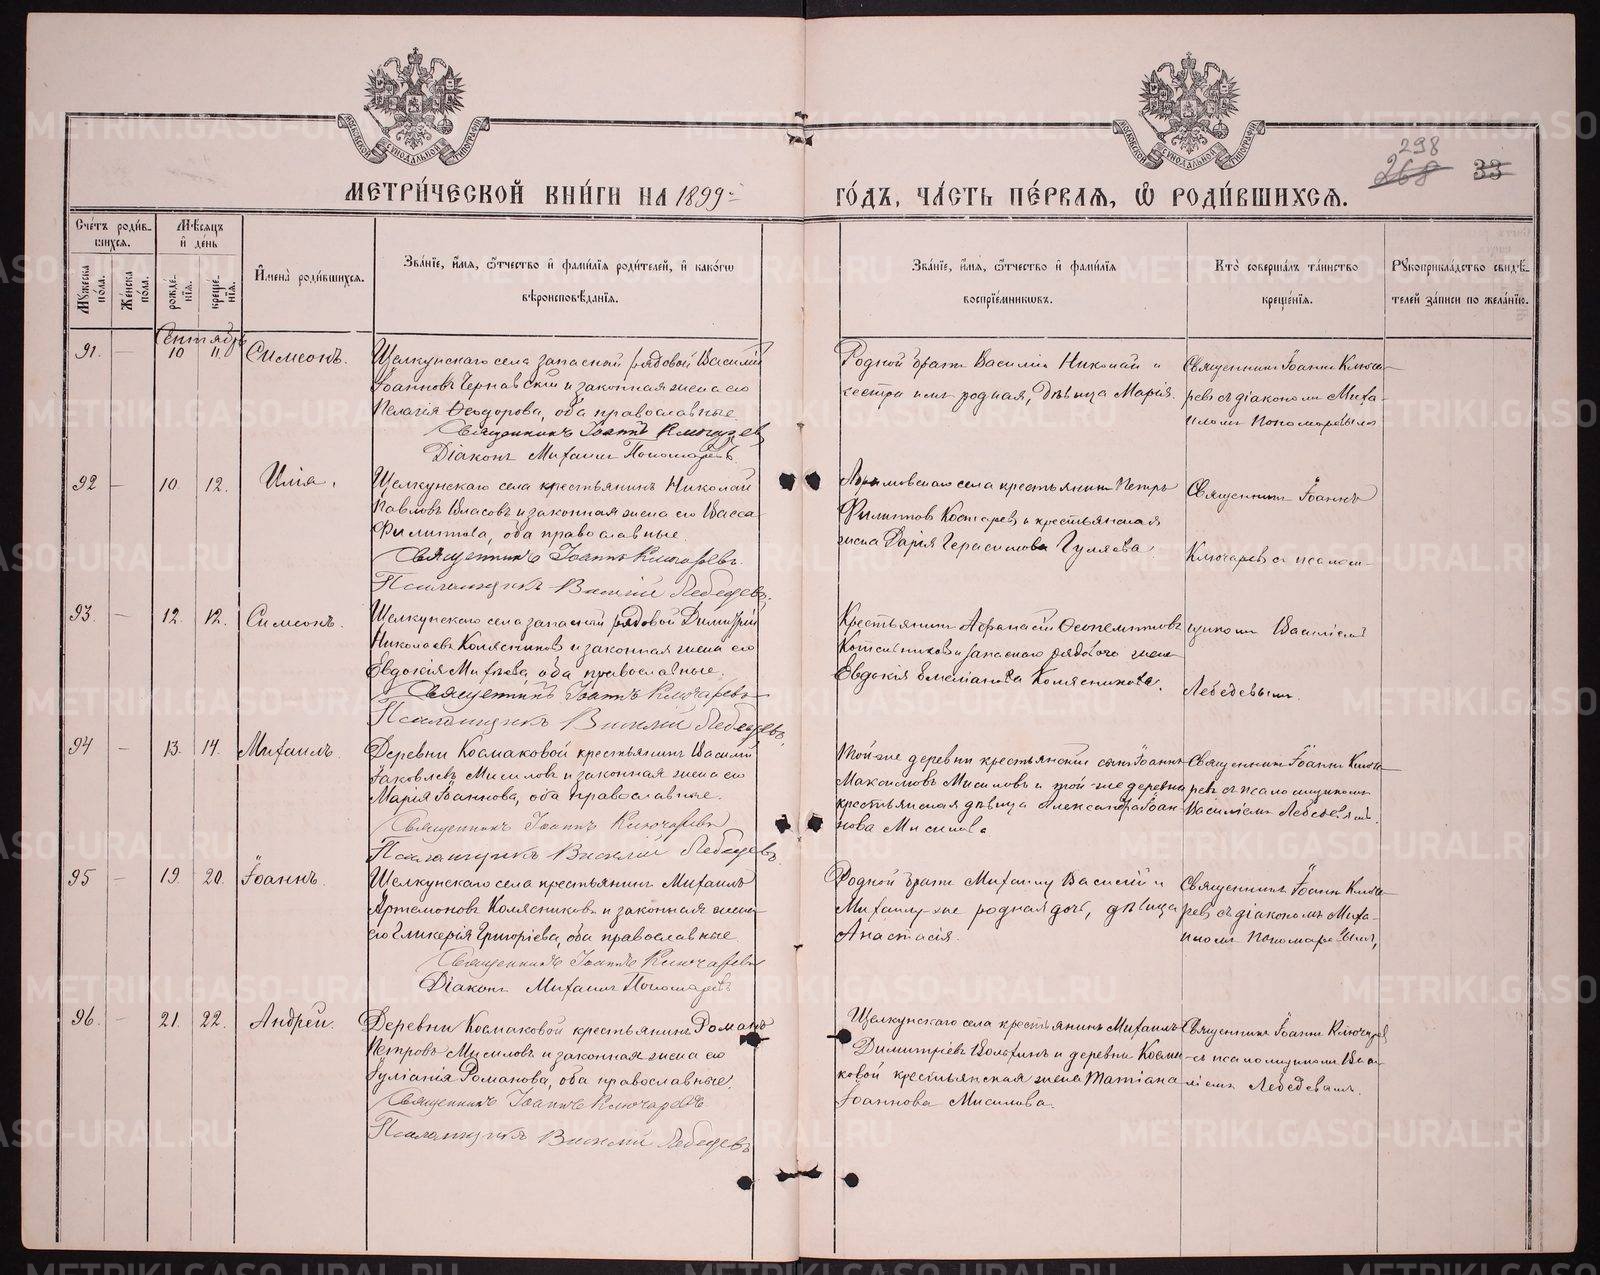 МОСКОВСКОЙ СѴНОДАЛЬНОЙ ТИПОГРАФІИ
МОСКОВСКОЙ СѴНОДАЛЬНОЙ ТИПОГРАФІИ
298
268 33
МЕТРИ́ЧЕСКОЙ КНИ́ГИ НА 1899 ГО́ДЪ, ЧА́СТЬ ПЕ́РВАѦ, Ѡ҆ РОДИ́ВШИХСѦ.
Сче́тъ роди́в-
шихся.
Мѣ́сяцъ
и҆ де́нь
Мꙋ́жеска по́ла.
Же́нска по́ла.
рожде́-
нїя.
креще́-
нїя.
И҆мена̀ роди́вшихся.
Зва́нїе, и҆́мя, ѻ҆́тчество и҆ фами́лїя роди́телей, и҆ како́гѡ
вѣроисповѣ́данїя.
Зва́нїе, и҆́мя, ѻ҆́тчество и҆ фами́лїя
воспрїе́мникѡвъ.
Кто̀ соверша́лъ та́инство
креще́нїя.
Рꙋкоприкла́дство свидѣ́-
телей за́писи по жела́нїю.
Сентябрь
91. — 10 11. Симеонъ.
Щелкунскаго села запасной рядовой Василій
Іоанновъ Чернавскій и законная жена его
Пелагія Ѳеодорова, оба православные
Священникъ Іоаннъ Ключаревъ
Діаконъ Михаилъ Пономаревъ.
Родной братъ Василія Николай и
сестра имъ родная, дѣвица Марія.
Священникъ Іоаннъ Ключа-
ревъ съ діакономъ Миха-
иломъ Пономаревымъ
92 — 10. 12. Илія.
Щелкунскаго села крестьянинъ Николай
Павловъ Власовъ и законная жена его Васса
Филиппова, оба православные.
Священникъ Іоаннъ Ключаревъ.
Псаломщикъ Василій Лебедевъ.
села крестьянинъ Петръ
Филипповъ Костаревъ и крестьянская
жена Дарія Герасимова Гуляева.
Священникъ Іоаннъ
Ключаревъ съ псалом-
93. — 12. 12. Симеонъ.
Щелкунскаго села запасной рядовой Димитрій
Николаевъ Колясниковъ и законная жена его
Евдокія Михѣева, оба православные.
Священникъ Іоаннъ Ключаревъ
Псаломщикъ Василій Лебедевъ.
Крестьянинъ Аѳанасій Ѳеопемптовъ
и запаснаго рядового жена
Евдокія Емеліанова Колясникова.
щикомъ Василіемъ
Лебедевымъ.
94 — 13. 14. Михаилъ.
Деревни Космаковой крестьянинъ Василій
Іаковлевъ Мисиловъ и законная жена его
Марія Іоаннова, оба православные.
Священникъ Іоаннъ Ключаревъ
Псаломщикъ Василій Лебедевъ
Той-же деревни крестьянскій сынъ Іоаннъ
Максимовъ Мисиловъ и той-же деревни
крестьянская дѣвица Александра Іоан-
нова Мисилова
Священникъ Іоаннъ Ключа-
ревъ съ псаломщикомъ
Василіемъ Лебедевымъ.
95 — 19. 20. Іоаннъ.
Щелкунскаго села крестьянинъ Михаилъ
Артемоновъ Колясниковъ и законная жена
его Гликерія Григоріева, оба православные
Священникъ Іоаннъ Ключаревъ
Діаконъ Михаилъ Пономаревъ
Родной братъ Михаилу Василій и
Михаилу-же родная дочь, дѣвица
Анастасія.
Священникъ Іоаннъ Ключа-
ревъ съ діакономъ Миха-
иломъ Пономаревымъ,
96. — 21. 22. Андрей.
Деревни Космаковой крестьянинъ Романъ
Петровъ Мисиловъ и законная жена его
Іуліанія Романова, оба православные.
Священникъ Іоаннъ Ключаревъ
Псаломщикъ Василій Лебедевъ
Щелкунскаго села крестьянинъ Михаилъ
Димитріевъ и деревни Косма-
ковой крестьянская жена Татіана
Іоаннова Мисилова.
Священникъ Іоаннъ Ключаревъ
съ псаломщикомъ Васи-
ліемъ Лебедевымъ.
METRIKI.GASO-URAL.RU